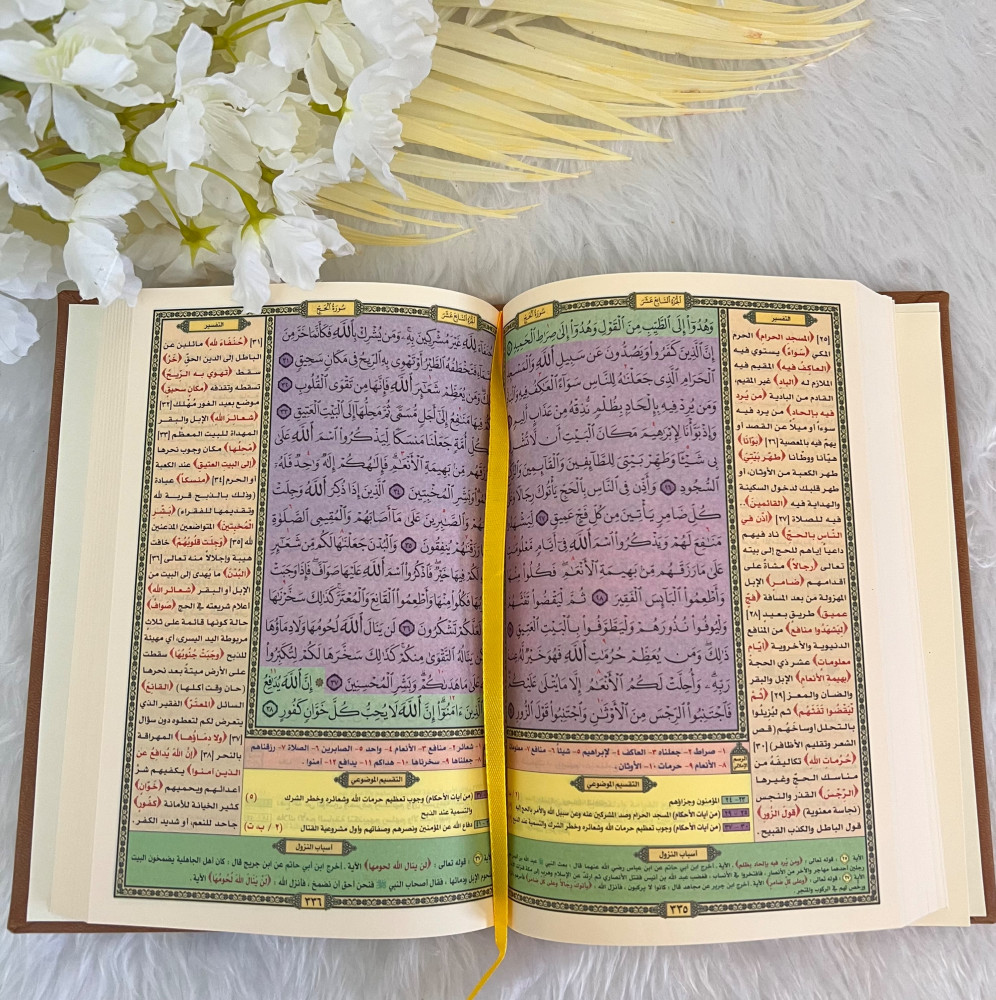 الجزء السابع عشر
سورة الحج
وَهُدُوٓاْ إِلَى ٱلطَّيِّبِ مِنَ ٱلْقَوْلِ وَهُدُوٓاْ إِلَىٰ صِرَٰطِ ٱلْحَمِيدِ
إِنَّ ٱلَّذِينَ كَفَرُواْ وَيَصُدُّونَ عَن سَبِيلِ ٱللَّهِ
ٱلْحَرَامِ ٱلَّذِى جَعَلْنَٰهُ لِلنَّاسِ سَوَآءً ٱلْعَٰكِفُ فِيهِ
وَمَن يُرِدْ فِيهِ بِإِلْحَادٍۭ بِظُلْمٍ نُّذِقْهُ مِنْ عَذَابٍ أَلِيمٍ
وَإِذْ بَوَّأْنَا لِإِبْرَٰهِيمَ مَكَانَ ٱلْبَيْتِ أَن لَّا تُشْرِكْ
بِى شَيْـًٔا وَطَهِّرْ بَيْتِىَ لِلطَّآئِفِينَ وَٱلْقَآئِمِينَ
ٱلسُّجُودِ ٢٦ وَأَذِّن فِى ٱلنَّاسِ بِٱلْحَجِّ يَأْتُوكَ رِجَالًا
كُلِّ ضَامِرٍ يَأْتِينَ مِن كُلِّ فَجٍّ عَمِيقٍ ٢٧ لِّيَشْهَدُواْ
مَنَٰفِعَ لَهُمْ وَيَذْكُرُواْ ٱسْمَ ٱللَّهِ فِىٓ أَيَّامٍ مَّعْلُومَٰتٍ
عَلَىٰ مَا رَزَقَهُم مِّنۢ بَهِيمَةِ ٱلْأَنْعَٰمِ فَكُلُواْ مِنْهَا
وَأَطْعِمُواْ ٱلْبَآئِسَ ٱلْفَقِيرَ ٢٨ ثُمَّ لْيَقْضُواْ تَفَثَهُمْ
وَلْيُوفُواْ نُذُورَهُمْ وَلْيَطَّوَّفُواْ بِٱلْبَيْتِ ٱلْعَتِيقِ
ذَٰلِكَ وَمَن يُعَظِّمْ حُرُمَٰتِ ٱللَّهِ فَهُوَ خَيْرٌ لَّهُۥ عِندَ
رَبِّهِۦ وَأُحِلَّتْ لَكُمُ ٱلْأَنْعَٰمُ إِلَّا مَا يُتْلَىٰ عَلَيْكُمْ
فَٱجْتَنِبُواْ ٱلرِّجْسَ مِنَ ٱلْأَوْثَٰنِ وَٱجْتَنِبُواْ قَوْلَ ٱلزُّورِ
التفسير
[٢٥] ﴿المسجد الحرام﴾ الحرم
المكي ﴿سَوَاءً﴾ يستوي فيه
﴿العاكف فيه﴾ المقيم فيه
الملازم له ﴿الباد﴾ غير المقيم،
القادم من البادية ﴿من يرد
فيه بإلحاد﴾ من يرد فيه
سوءاً أو ميلاً عن القصد أو
يهمّ فيه بالمعصية [٢٦] ﴿بوّأنا﴾
هيأنا ووطأنا ﴿طهر بيتي﴾
طهر الكعبة من الأوثان، أو
طهر قلبك لدخول السكينة
والهداية فيه ﴿القائمين﴾..
فيه للصلاة [٢٧] ﴿أذن في
الناس بالحج﴾ ناد فيهم
داعيا إياهم للحج إلى بيته
تعالى ﴿رجالاً﴾ مشاة على
أقدامهم ﴿ضامر﴾ الإبل
المهزولة من بعد المسافة ﴿فجّ
عميق﴾ طريق بعيد [٢٨]
﴿ليشهدوا منافع﴾ من المنافع
الدنيوية والأخروية ﴿أيام
معلومات﴾ عشر ذي الحجة
﴿بهيمة الأنعام﴾ الإبل والبقر
والضأن والمعز [٢٩] ﴿ثُمَّ
ليقضوا تفثهم﴾ ثم ليزيلوا
بالتحلل أوساخهم (قص
الشعر وتقليم الأظافر) [٣٠]
﴿حُرُمَاتِ الله﴾ تكاليفه من
مناسك الحج وغيرها
﴿الرِّجْسَ﴾ القذر والنجس
(نجاسة معنوية) ﴿قول الزور﴾
قول الباطل والكذب القبيح.
الرسم الإملائي
١- صراط ٢- جعلناه ٣- العاكف ٤- لإبراهيم ٥- شيئا ٦- منافع
٨- الأنعام ٩- حرمات ١٠- الأوثان.
التقسيم الموضوعي
المؤمنون وجزاؤهم
(من آيات الأحكام) المسجد الحرام وصد المشركين عنه ومن سبيل الله والأمر بالحج
(من آيات الأحكام) وجوب تعظيم حرمات الله وشعائره وخطر الشرك والتسمية عند
أسباب النزول
٣٣٥
سورة الحج
الجزء السابع عشر
حُنَفَآءَ لِلَّهِ غَيْرَ مُشْرِكِينَ بِهِۦ وَمَن يُشْرِكْ بِٱللَّهِ فَكَأَنَّمَا خَرَّ مِنَ
فَتَخْطَفُهُ ٱلطَّيْرُ أَوْ تَهْوِى بِهِ ٱلرِّيحُ فِى مَكَانٍ سَحِيقٍ ٣١
وَمَن يُعَظِّمْ شَعَٰٓئِرَ ٱللَّهِ فَإِنَّهَا مِن تَقْوَى ٱلْقُلُوبِ ٣٢
فِيهَا مَنَٰفِعُ إِلَىٰٓ أَجَلٍ مُّسَمًّى ثُمَّ مَحِلُّهَآ إِلَى ٱلْبَيْتِ ٱلْعَتِيقِ ٣٣
كُلِّ أُمَّةٍ جَعَلْنَا مَنسَكًا لِّيَذْكُرُواْ ٱسْمَ ٱللَّهِ عَلَىٰ
رَزَقَهُم مِّنۢ بَهِيمَةِ ٱلْأَنْعَٰمِ فَإِلَٰهُكُمْ إِلَٰهٌ وَٰحِدٌ فَلَهُۥٓ
وَبَشِّرِ ٱلْمُخْبِتِينَ ٣٤ ٱلَّذِينَ إِذَا ذُكِرَ ٱللَّهُ وَجِلَتْ
وَٱلصَّٰبِرِينَ عَلَىٰ مَآ أَصَابَهُمْ وَٱلْمُقِيمِى ٱلصَّلَوٰةِ
رَزَقْنَٰهُمْ يُنفِقُونَ ٣٥ وَٱلْبُدْنَ جَعَلْنَٰهَا لَكُم مِّن شَعَٰٓئِرِ
لَكُمْ فِيهَا خَيْرٌ فَٱذْكُرُواْ ٱسْمَ ٱللَّهِ عَلَيْهَا صَوَآفَّ فَإِذَا وَجَبَتْ
فَكُلُواْ مِنْهَا وَأَطْعِمُواْ ٱلْقَانِعَ وَٱلْمُعْتَرَّ كَذَٰلِكَ سَخَّرْنَٰهَا
لَعَلَّكُمْ تَشْكُرُونَ ٣٦ لَن يَنَالَ ٱللَّهَ لُحُومُهَا وَلَا دِمَآؤُهَا
يَنَالُهُ ٱلتَّقْوَىٰ مِنكُمْ كَذَٰلِكَ سَخَّرَهَا لَكُمْ لِتُكَبِّرُواْ
عَلَىٰ مَا هَدَىٰكُمْ وَبَشِّرِ ٱلْمُحْسِنِينَ ٣٧ إِنَّ ٱللَّهَ يُدَٰفِعُ
ٱلَّذِينَ ءَامَنُوٓاْ إِنَّ ٱللَّهَ لَا يُحِبُّ كُلَّ خَوَّانٍ كَفُورٍ ٣٨
التفسير
[٣١] ﴿حُنَفَاءَ لله﴾ مائلين عن
الباطل إلى الدين الحق ﴿خَرَّ﴾
سقط ﴿تهوي به الريح﴾
تسقطه وتقذفه ﴿مكان سحيق﴾
موضع بعيد الغور مُهْلك [٣٢]
﴿شعائر الله﴾ الإبل والبقر
المهداة للبيت المعظم [٣٣]
﴿محلها﴾ مكان وجوب نحرها
﴿إلى البيت العتيق﴾ عند الكعبة
أو الحرم [٣٤] ﴿منسكاً﴾ عبادة
(وذلك بالذبح قربة لله
وتقديمها للفقراء) ﴿بَشِّرِ
المُخبتين﴾ المتواضعين المذعنين
لله [٣٥] ﴿وجلت قلوبهم﴾ خافت
هيبة وإجلالاً منه تعالى [٣٦]
﴿البُدْنَ﴾ ما يُهدى إلى البيت من
الإبل أو البقر ﴿شعائر الله﴾
أعلام شريعته في الحج ﴿صوافّ﴾
حالة كونها قائمة على ثلاث
مربوطة اليد اليسرى أي مهيئة
للذبح ﴿وجبت جنوبها﴾ سقطت
على الأرض ميتة بعد نحرها
(حان وقت أكلها) ﴿القانع﴾
السائل ﴿المعترّ﴾ الفقير الذي
يتعرض لكم لتعطوه دون سؤال
[٣٧] ﴿ولا دماؤها﴾ المهراقة
بالنحر [٣٨] ﴿إن الله يدافع عن
الذين آمنوا﴾ يكفيهم شر
أعدائهم ويحميهم ﴿خوّان﴾
كثير الخيانة للأمانة ﴿كفور﴾
جاحد للنعم، أو شديد الكفر.
١- شعائر ٢- منافع ٣- الأنعام ٤- واحد ٥- الصابرين ٦- الصلاة ٧- رزقناهم
٨- جعلناها ٩- سخرناها ١٠- هداكم ١١- يدافع ١٢- آمنوا.
التقسيم الموضوعي
(من آيات الأحكام) وجوب تعظيم حرمات الله وشعائره وخطر الشرك
والتسمية عند الذبح
(٥)
دفاع الله عن المؤمنين ونصرهم وصفاتهم وأول مشروعية القتال
(٢ / ب ت)
أسباب النزول
قوله تعالى: ﴿لن ينال الله لحومها﴾ الآية. أخرج ابن أبي حاتم عن ابن جريج قال: كان أهل الجاهلية يضمخون البيت
بلحوم الإبل ودمائها، فقال أصحاب النبي ﷺ فنحن أحق أن نضمخ، فأنزل الله: ﴿لَنْ يَنَالَ اللهَ لُحُومُهَا﴾ الآية.
٣٣٦